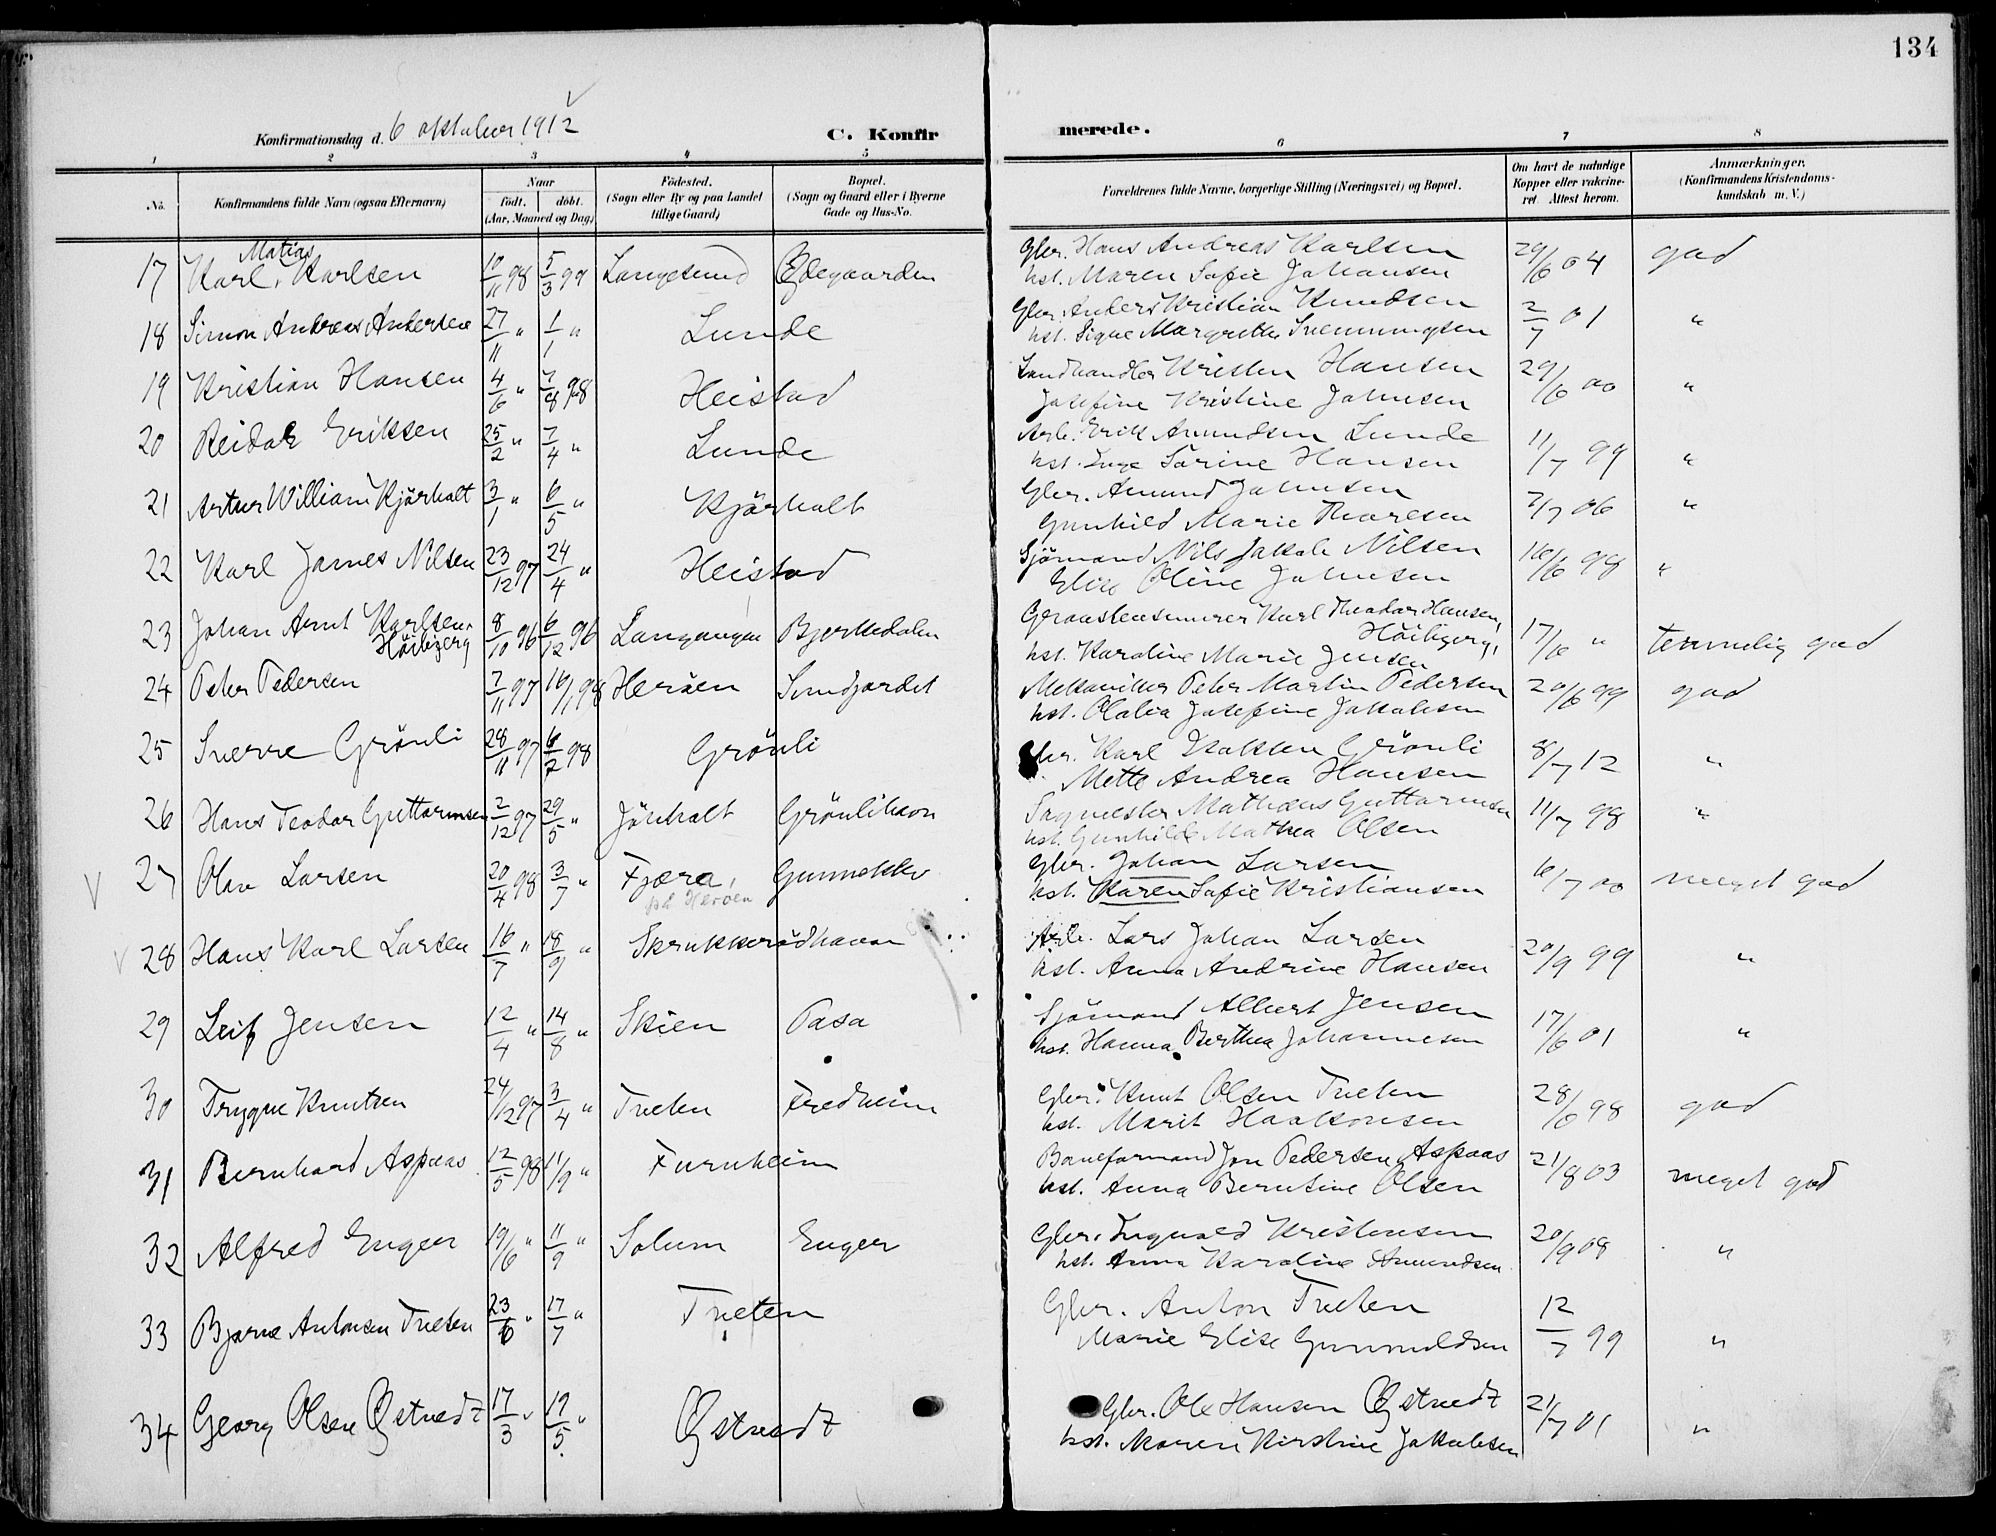 134
Konfirmationsdag d. 6 oktober 1912
C. Konfirmerede.
1 2 3 4 5 6 7 8
No. Konfirmandens fulde Navn (ogsaa Efternavn) Naar födt. döbt. (Aar, Maaned og Dag) Födested. (Sogn eller By og paa Landet tillige Gaard) Bopæl. (Sogn og Gaard eller i Byerne Gade og Hus-No. Forældrenes fulde Navne, borgerlige Stilling (Næringsvei) og Bopæl. Om havt de naturlige Kopper eller vaccineret. Attest herom. Anmærkninger. (Konfirmandens Kristendomskundskab m. V.)
17 Karl Matias Karlsen 10/11 98 5/3 99 Langesund Ødegaarden Gbr. Hans Andreas Karlsen 29/6 04 god
hst. Maren Sofie Johansen
18 Simon Andreas Andersen 27/11 " 1/1 " Lunde Gbr. Anders Kristian Knudsen 2/7 01 "
hst. Signe Margrethe Svenningsen
19 Kristian Hansen 4/6 " 7/8 98 Heistad Landhandler Kristen Hansen 29/6 00 "
Josefine Kristine Johnsen
20 Reidar Eriksen 25/2 " 7/4 " Lunde Arb. Erik Amundsen Lunde 11/7 99 "
hst. Inga Sørine Hansen
21 Artur William Kjørholt 3/1 " 6/5 " Kjørholt Gbr. Amund Johnsen 2/7 06 "
Gunhild Marie Thoresen
22 Karl James Nilsen 23/12 97 24/4 " Heistad Sjömand Nils Jakob Nilsen 16/6 98 "
Elise Oline Johnsen
23 Johan Arnt Karlsen Höibjerg 8/10 96 6/12 96 Langangen Bjerkedalen Karl Theodor Hansen Höibjerg, 17/6 " temmelig god
hst. Karoline Marie Jensen
24 Peter Pedersen 7/11 97 16/1 98 Heröen Sundjordet Mekaniker Peter Martin Pedersen 20/6 99 god
hst. Olalia Josefine Jakobsen
25 Sverre Grönli 28/11 97 6/2 98 Grönli Gbr. Karl Isaksen Grönli 8/7 12 "
Mette Andrea Hansen
26 Hans Teodor Guttormsen 2/12 97 29/5 " Jönholt Grönlikaas Sagmester Mathæus Guttormsen 11/7 98 "
hst. Gunhild Mathea Olsen
27 Olav Larsen 20/4 98 3/7 " Fjæra, på Herøen Gunneklev Gbr. Johan Larsen 6/7 00 meget god
hst. Karen Sofie Kristiansen
28 Hans Karl Larsen 16/7 " 18/9 " Skrukkerödhavna Arb. Lars Johan Larsen 20/9 99 "
hst. Anna Andrine Hansen
29 Leif Jensen 12/4 " 14/8 " Skien Pasa Sjömand Albert Jensen 17/6 01 "
hst. Hanna Berthea Johannesen
30 Trygve Knutsen 24/12 97 3/4 " Tveten Fredheim Gbr. Knut Olsen Tveten 28/6 98 god
hst. Marit Haakonsen
31 Bernhard Aspaas 12/5 98 11/9 " Furuheim Baneformand Jon Pedersen Aspaas 21/8 03 meget god
hst. Anna Berntine Olsen
32 Alfred Enger 19/6 " 11/9 " Solum Enger Gbr. Ingvald Kristensen 20/9 08 "
hst. Anna Karoline Amundsen
33 Bjarne Antonsen Tveten 23/6 " 17/7 " Tveten Gbr. Anton Tveten 12/7 99 "
Marie Elise Gunnuldsen
34 Georg Olsen Østvedt 17/3 " 19/5 " Østvedt Gbr. Ole Hansen Østvedt 21/7 01 "
hst. Maren Kirstine Jakobsen